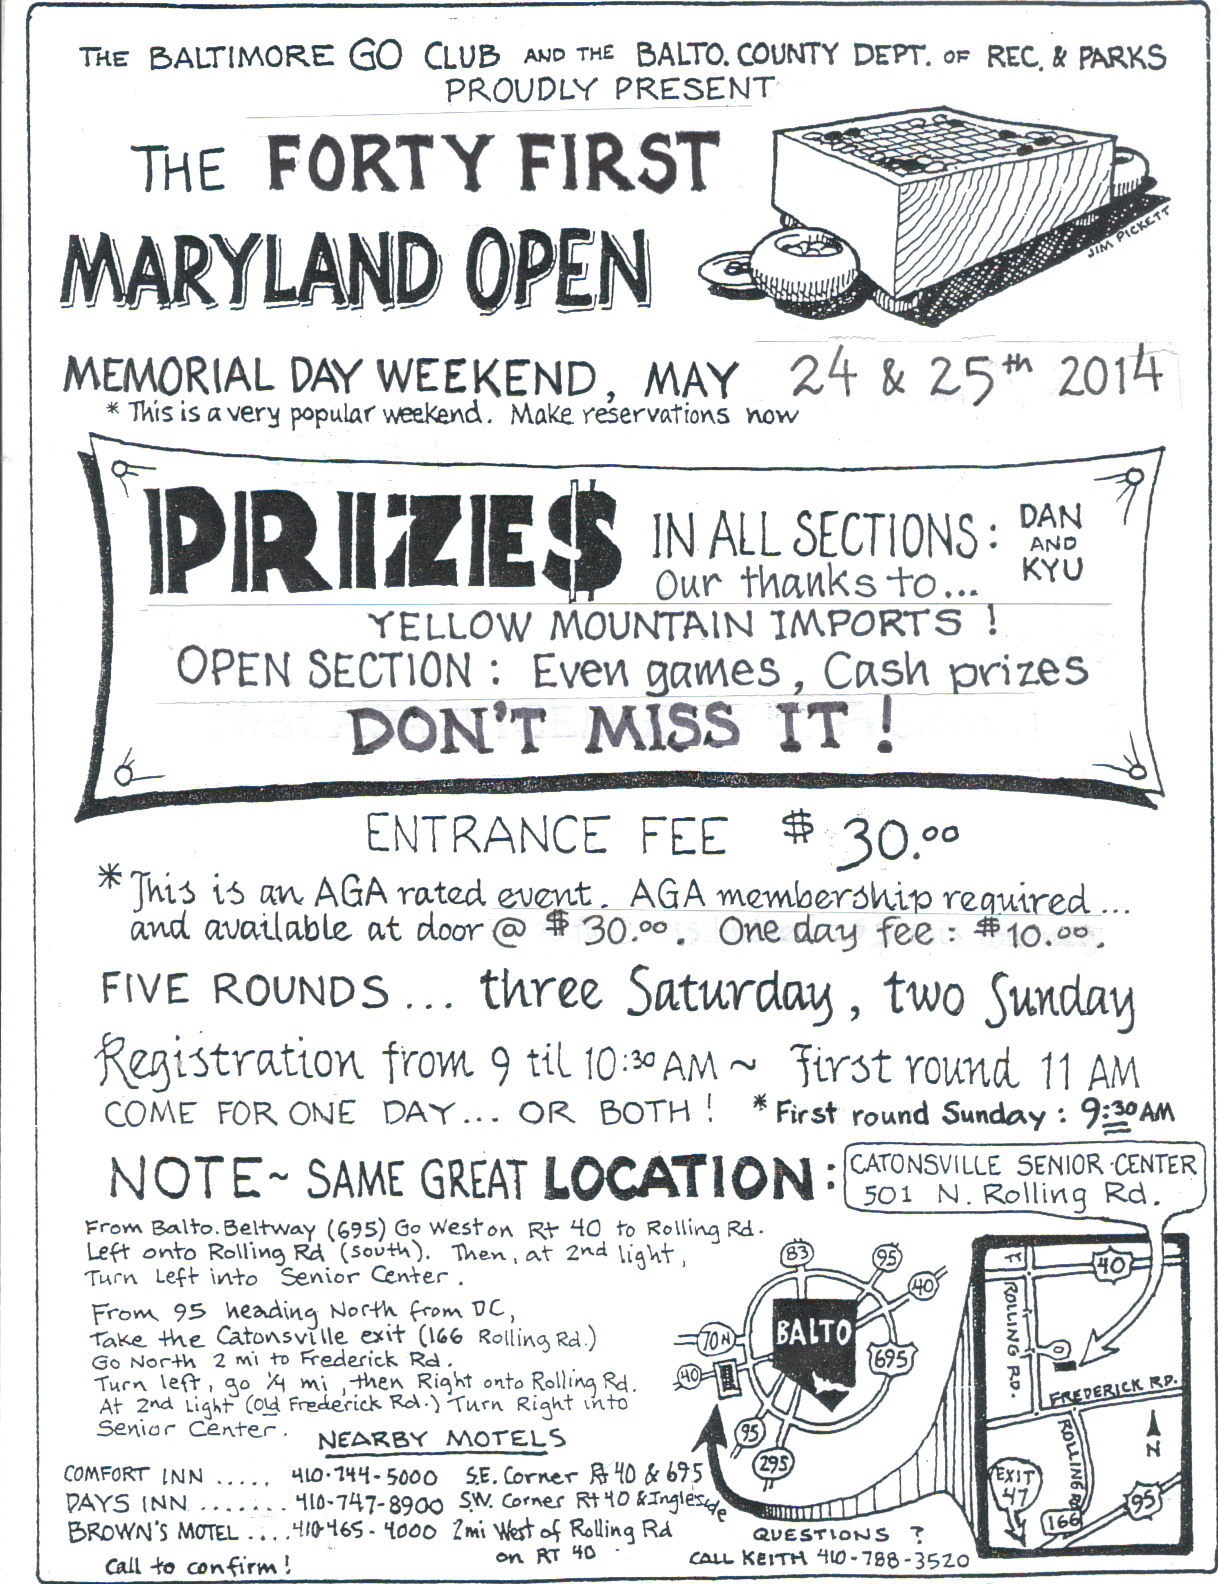 THE BALTIMORE GO CLUB AND THE BALTO. COUNTY DEPT. OF REC. & PARKS
PROUDLY PRESENT
THE FORTY FIRST
MARYLAND OPEN
JIM PICKETT
MEMORIAL DAY WEEKEND, MAY 24 & 25th 2014
* This is a very popular weekend. Make reservations now
PRIZE$ IN ALL SECTIONS: DAN AND KYU
Our thanks to...
YELLOW MOUNTAIN IMPORTS !
OPEN SECTION : Even games, Cash prizes
DON'T MISS IT !
ENTRANCE FEE $ 30.00
* This is an AGA rated event. AGA membership required...
and available at door @ $30.00. One day fee: $10.00.
FIVE ROUNDS... three Saturday, two Sunday
Registration from 9 til 10:30 AM ~ First round 11 AM
COME FOR ONE DAY... OR BOTH! * First round Sunday: 9:30 AM
NOTE ~ SAME GREAT LOCATION:
CATONSVILLE SENIOR CENTER
501 N. Rolling Rd.
From Balto. Beltway (695) Go West on Rt 40 to Rolling Rd.
Left onto Rolling Rd (south). Then, at 2nd light,
Turn Left into Senior Center.
From 95 heading North from DC,
Take the Catonsville exit (166 Rolling Rd.)
Go North 2 mi to Frederick Rd.
Turn left, go 1/4 mi, then Right onto Rolling Rd.
At 2nd Light (Old Frederick Rd.) Turn Right into
Senior Center.
NEARBY MOTELS
COMFORT INN ..... 410-744-5000 S.E. Corner Rt 40 & 695
DAYS INN ....... 410-747-8900 S.W. Corner Rt 40 & Ingleside
BROWN'S MOTEL .... 410-465-4000 2mi West of Rolling Rd
on RT 40
Call to confirm!
83
95
40
70N
BALTO
695
40
95
295
QUESTIONS ?
CALL KEITH 410-788-3520
40
ROLLING RD.
FREDERICK RD.
N
ROLLING RD
EXIT
47
166
95